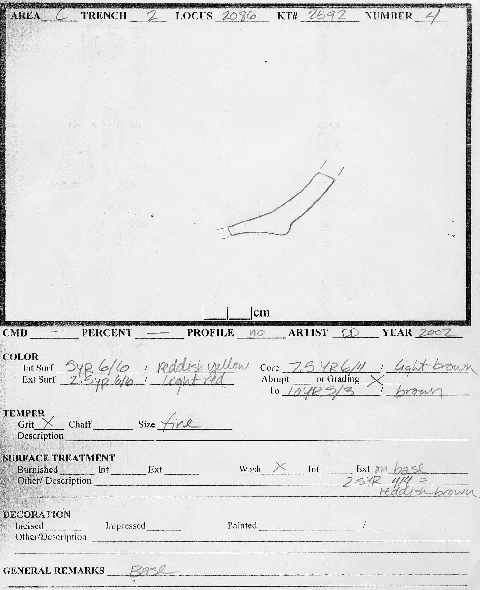 AREA C TRENCH 2 LOCUS 2086 KT# 2592 NUMBER 4
cm
CMD — PERCENT — PROFILE no ARTIST YEAR 2002
COLOR
Int Surf 5YR 6/6 / reddish yellow Core 7.5YR 6/4 / light brown
Ext Surf 2.5YR 6/6 / light red Abrupt or Grading X
To 10YR 5/3 / brown
TEMPER
Grit X Chaff Size fine
Description
SURFACE TREATMENT
Burnished Int Ext Wash X Int Ext on base
Other/ Description 2.5YR 4/4 =
reddish brown
DECORATION
Incised Impressed Painted /
Other/Description
GENERAL REMARKS Base